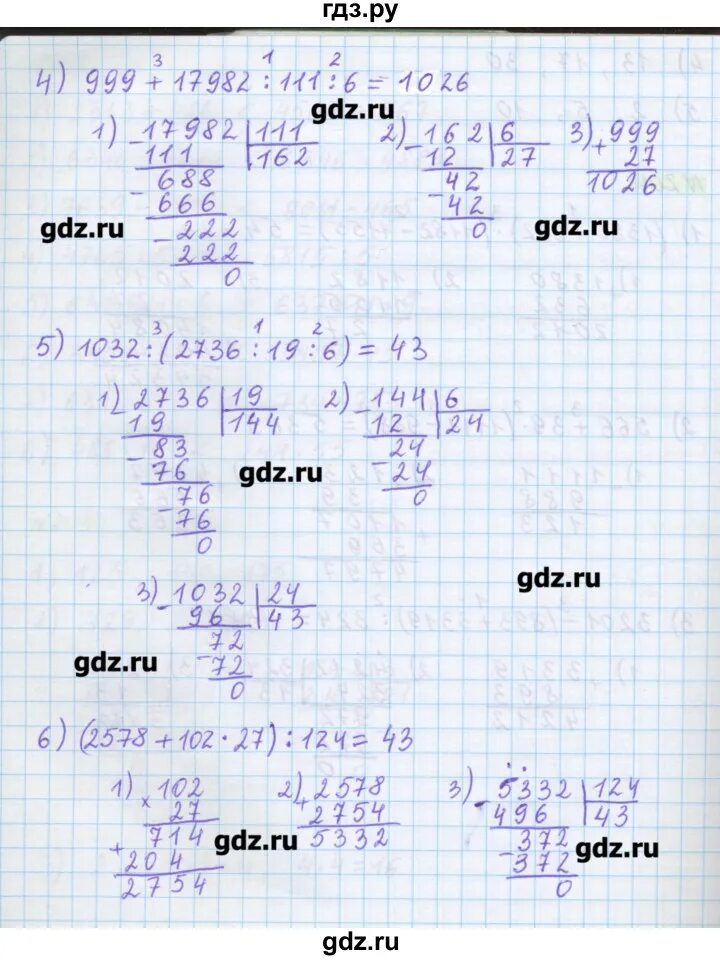 гдз.ру
4) 999 + 17982 : 111 : 6 = 1026
3 1 2
gdz.ru
1) 17982 | 111
- 111 162
688
- 666
222
- 222
0
2) 162 | 6
- 12 27
42
- 42
0
3) 999
+ 27
1026
gdz.ru
gdz.ru
5) 1032 : (2736 : 19 : 6) = 43
3 1 2
1) 2736 | 19
- 19 144
83
- 76
76
- 76
0
2) 144 | 6
- 12 24
24
- 24
0
gdz.ru
gdz.ru
3) 1032 | 24
- 96 43
72
- 72
0
gdz.ru
6) (2578 + 102 · 27) : 124 = 43
1) 102
× 27
714
+ 204
2754
2) 2578
+ 2754
5332
3) 5332 | 124
- 496 43
372
- 372
0
gdz.ru
gdz.ru
gdz.ru